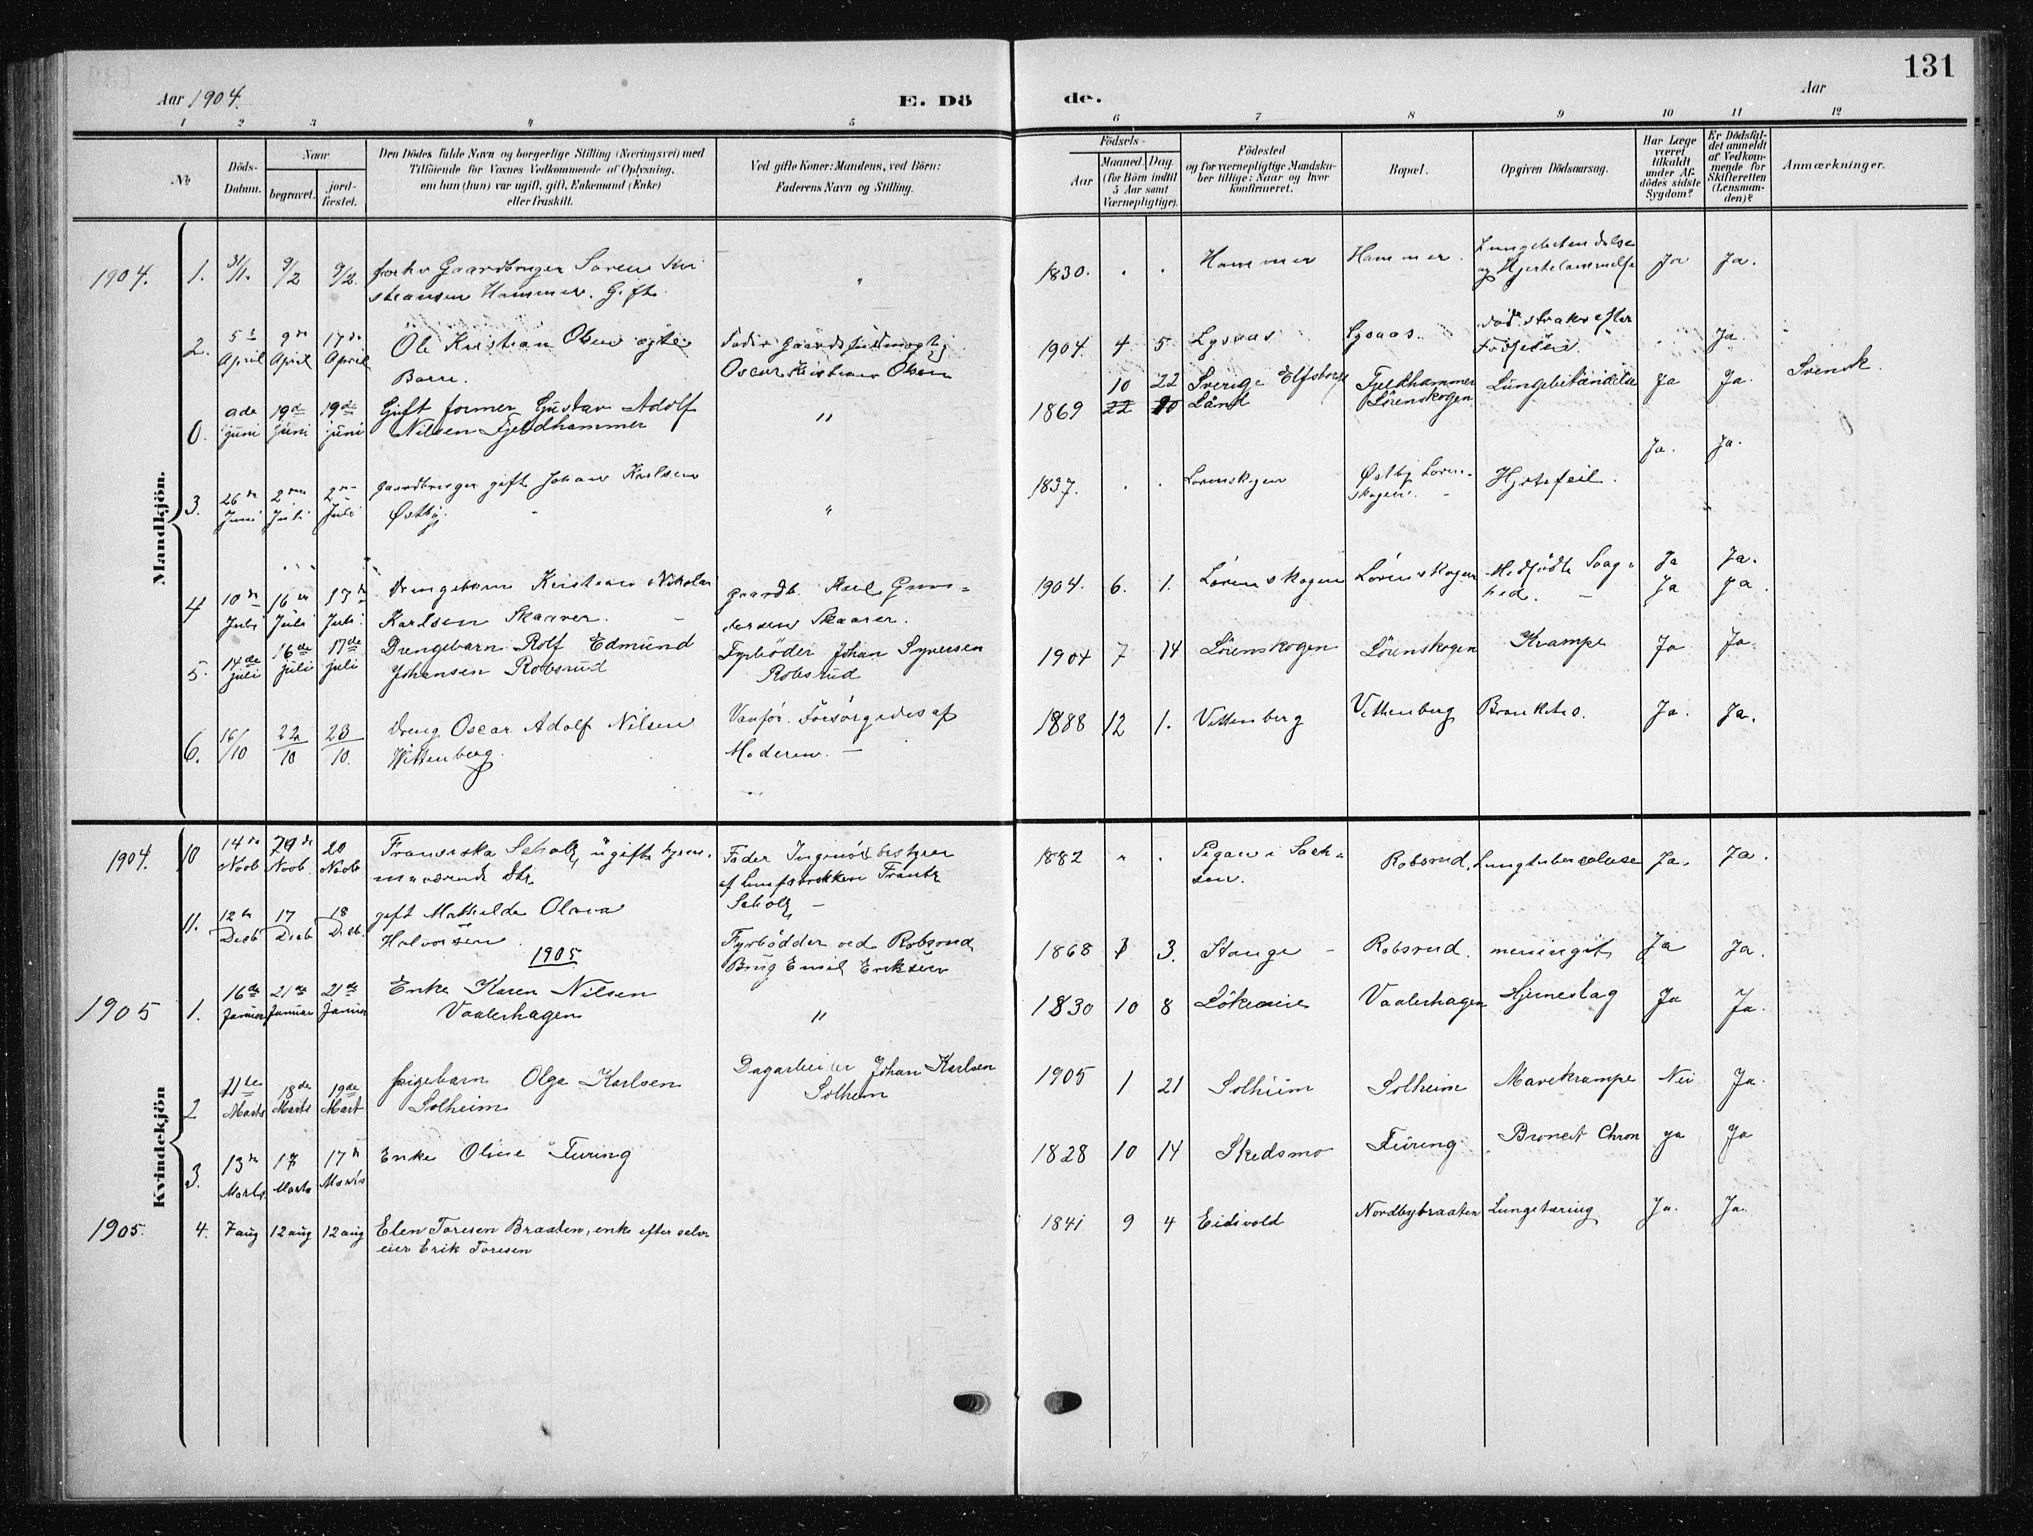 131
Aar 1904.
E. Dö
de.
Aar
1 2 3 4 5
6 7 8 9 10 11 12
No
Döds-
Datum.
Naar
begravet.
jord-
fæstet.
Den Dödes fulde Navn og borgerlige Stilling (Næringsvei) med
Tilföiende for Voxnes Vedkommende af Oplysning,
om han (hun) var ugift, gift, Enkemand (Enke)
eller fraskilt.
Ved gifte Koner: Mandens, ved Börn:
Faderens Navn og Stilling.
Födsels-
Aar
Maaned. Dag.
(for Börn indtil
5 Aar samt
Værnepligtige).
Födested
og for værnepligtige Mandska-
ber tillige: Naar og hvor
konfirmeret.
Bopæl.
Opgiven Dödsaarsag.
Har Læge
været
tilkaldt
under Af-
dödes sidste
Sygdom?
Er Dödsfal-
det anmeldt
af Vedkom-
mende for
Skifteretten
(Lensman-
den)?
Anmærkninger.
Mandkjön.
1904. 1. 31/1. 9/2 9/2. Gaardbruger Søren Kri
stiansen Hammer. Gift.
"
1830. Hammer Hammer. Lungebetændelse
og Hjertelammelse Ja Ja.
2. 5te April 9de April 17de April Ole Kristian Olsen ægte
Barn.
Oscar Kristian Olsen
1904. 4 5 Lysaas Lysaas. død straks efter
Fødselen. Ja.
0. 9de juni 19de juni 19de juni Gift former Gustav Adolf
Nilsen Fjeldhammer
"
1869 10 22 Sverige Elfsborgs
Länd Fjeldhammer
Lørenskogen Lungebetændelse Ja Ja. Svensk.
Ja. Ja.
3. 26de Juni 2den Juli 2den Juli gaardbruger gift Johan Karlsen
Østby.
"
1837. Lørenskogen Østby Løren-
skogen. Hjertefeil.
4 10de Juli 16de Juli 17de Juli. Drengebarn Kristian Nikolai
Karlsen Skaarer.
gaardb. Karl
Skaarer.
1904. 6. 1. Lørenskogen Lørenskogen Medfødte Svag-
hed. Ja Ja.
Ja Ja.
5. 14de juli 16de juli 17de juli Drengebarn Rolf Edmund
Johansen Robsrud
Fyrbøder Johan Syversen
Robsrud
1904 7 14 Lørenskogen Lørenskogen Krampe Ja Ja.
6. 16/10 22/10 23/10. Dreng Oscar Adolf Nilsen
Wittenberg.
Vanfør. Forsørgedes af
Moderen.
1888 12 1. Vittenberg Vittenberg Bronkitis. Ja. Ja.
Kvindekjön
1904. 10 14de Novb 20 Novb. 20 Novb Franciska Scholz, ugift
Fader Ingeniør bestyrer
af Frantz
Scholz
1882 Pegau i Sach-
sen. Robsrud. Lungtuberculose Ja. Ja.
11. 12te Decb 17 Decb 18 Decb. gift Mathilde Olava
Halvorsen.
Fyrbødder ved Robsrud
Brug Emil Eriksen
1868 1 3. Stange Robsrud. meningit Ja Ja.
1905
1905 1. 16de Januar 21de Januar 21de Januar Enke Karen Nilsen
Vaalerhagen
"
1830 10 8 Vaalerhagen Hjerneslag Ja Ja.
2 11te Marts 18de Marts 19de Mart Pigebarn Olga Karlsen
Solheim
Dagarbeider Johan Karlsen
Solheim
1905 1 21 Solheim Solheim Mavekrampe Nei Ja.
3. 13de Marts. 17 Marts 17de Marts Enke Oline Furing
1828 10 14 Skedsmo Furing Broncit Chron ja Ja
1905. 4. 7 aug 12 aug 12 aug Elen Toresen Braaten, enke efter selv-
eier Erik Toresen
1841 9 4 Eidsvold Nordbybraaten Lungetæring Ja. Ja.